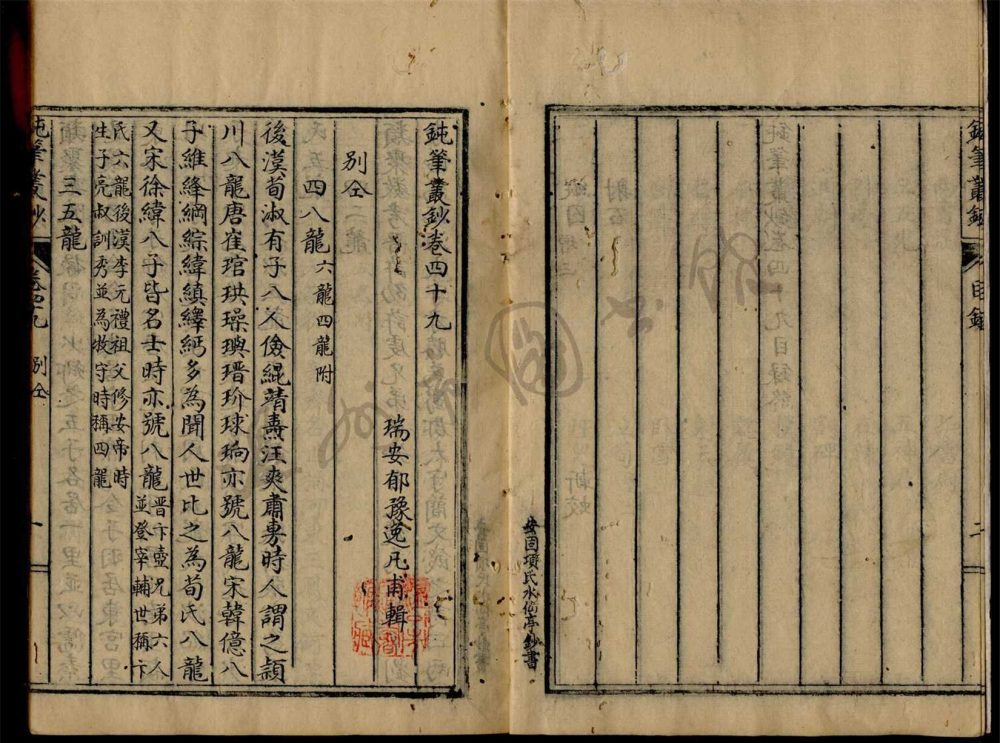 鈍筆叢鈔
目錄
二
安固項氏水仙亭鈔書
鈍筆叢鈔卷四十九
瑞安郁豫逸凡甫輯
別仝
四八龍六龍四龍附
後漢荀淑有子八人儉緄靖燾汪爽肅旉時人謂之穎
川八龍唐崔琯珙璪璵瑨玠球珦亦號八龍宋韓億八
子維絳綱綜緯縝繹緬多為聞人世比之為荀氏八龍
又宋徐緯八子皆名士時亦號八龍晋卞壼兄弟六人
並登宰輔世稱卞
氏六龍後漢李元禮祖父修安帝時
生子亮叔訓秀並為牧守時稱四龍
三五龍
鈍筆叢鈔
卷四十九
別仝
一